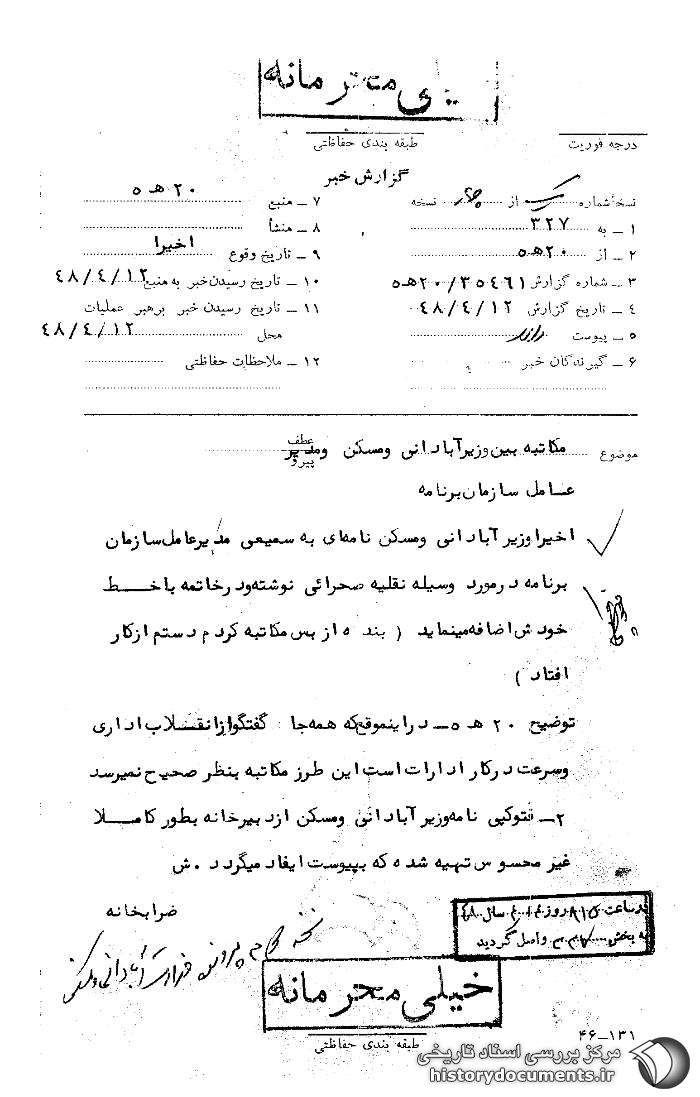 خیلی محرمانه
طبقه بندی حفاظتی
درجه فوریت
گزارش خبر
نسخهٔ شماره یک از چهار نسخه
۱ ـ به ۳۲۷
۲ ـ از ۲۰ هـ ۵
۳ ـ شماره گزارش ۲۰/۳۵۴۶۱ هـ ۵
۴ ـ تاریخ گزارش ۴۸/۴/۱۲
۵ ـ پیوست دارد
۶ ـ گیرندگان خبر
۷ ـ منبع ۲۰ هـ ۵
۸ ـ منشأ
۹ ـ تاریخ وقوع اخیرا
۱۰ ـ تاریخ رسیدن خبر به منبع ۴۸/۴/۱۲
۱۱ ـ تاریخ رسیدن خبر برهبر عملیات
محل ۴۸/۴/۱۲
۱۲ ـ ملاحظات حفاظتی
موضوع مکاتبه بین وزیر آبادانی ومسکن ومدیر
عطف
پیرو
عامل سازمان برنامه
اخیرا وزیر آبادانی ومسکن نامه‌ای به سمیعی مدیرعامل سازمان
برنامه درمورد وسیله نقلیه صحرائی نوشته ودرخاتمه باخط
خودش اضافه مینماید ( بنده از بس مکاتبه کردم دستم ازکار
افتاد )
توضیح ۲۰ هـ ۵ـ دراینموقع که همه جا گفتگواز انقلاب اداری
وسرعت درکار ادارات است این طرز مکاتبه بنظر صحیح نمیرسد
۲ـ فتوکپی نامه وزیر آبادانی ومسکن ازدبیرخانه بطور کاملا
غیر محسوس تهیه شده که بپیوست ایفاد میگردد . ش
ضرابخانه
درساعت ۸۱۵ روز سال ۴۸
به بخش واصل گردید
پرونده وزارت آبادانی و مسکن
خیلی محرمانه
طبقه بندی حفاظتی
۴۶ـ۱۳۱
مرکز بررسی اسناد تاریخی
historydocuments.ir